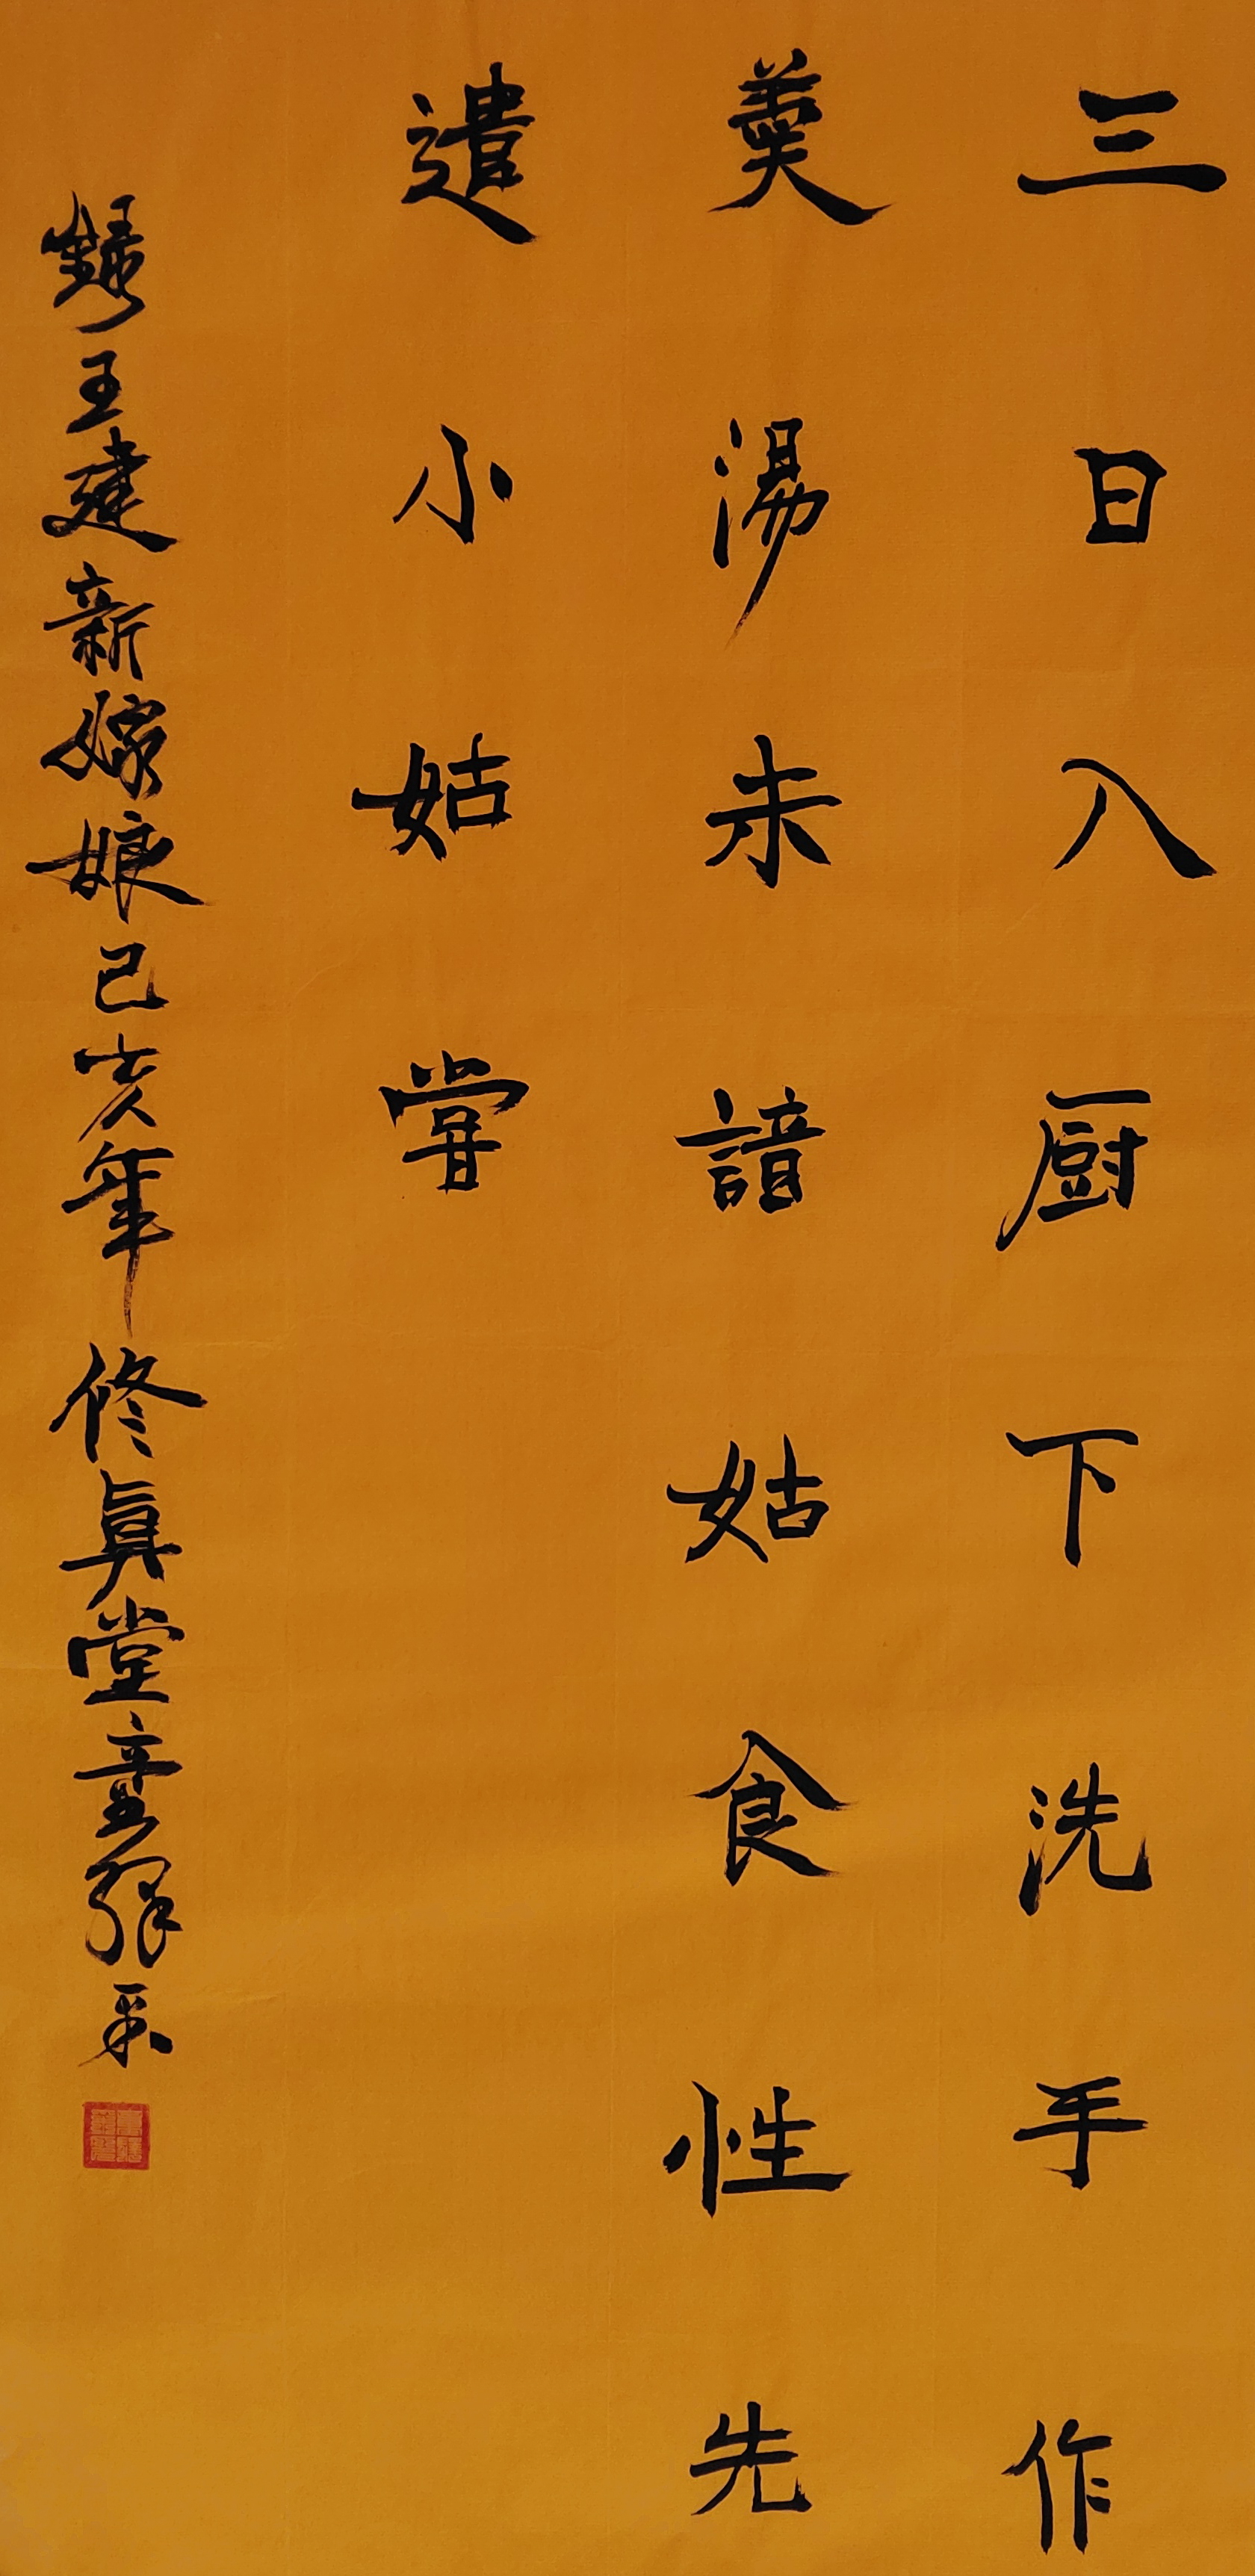 三日入厨下洗手作
羹湯未諳姑食性先
遣小姑嘗
錄王建新嫁娘己亥年修真堂童羿采